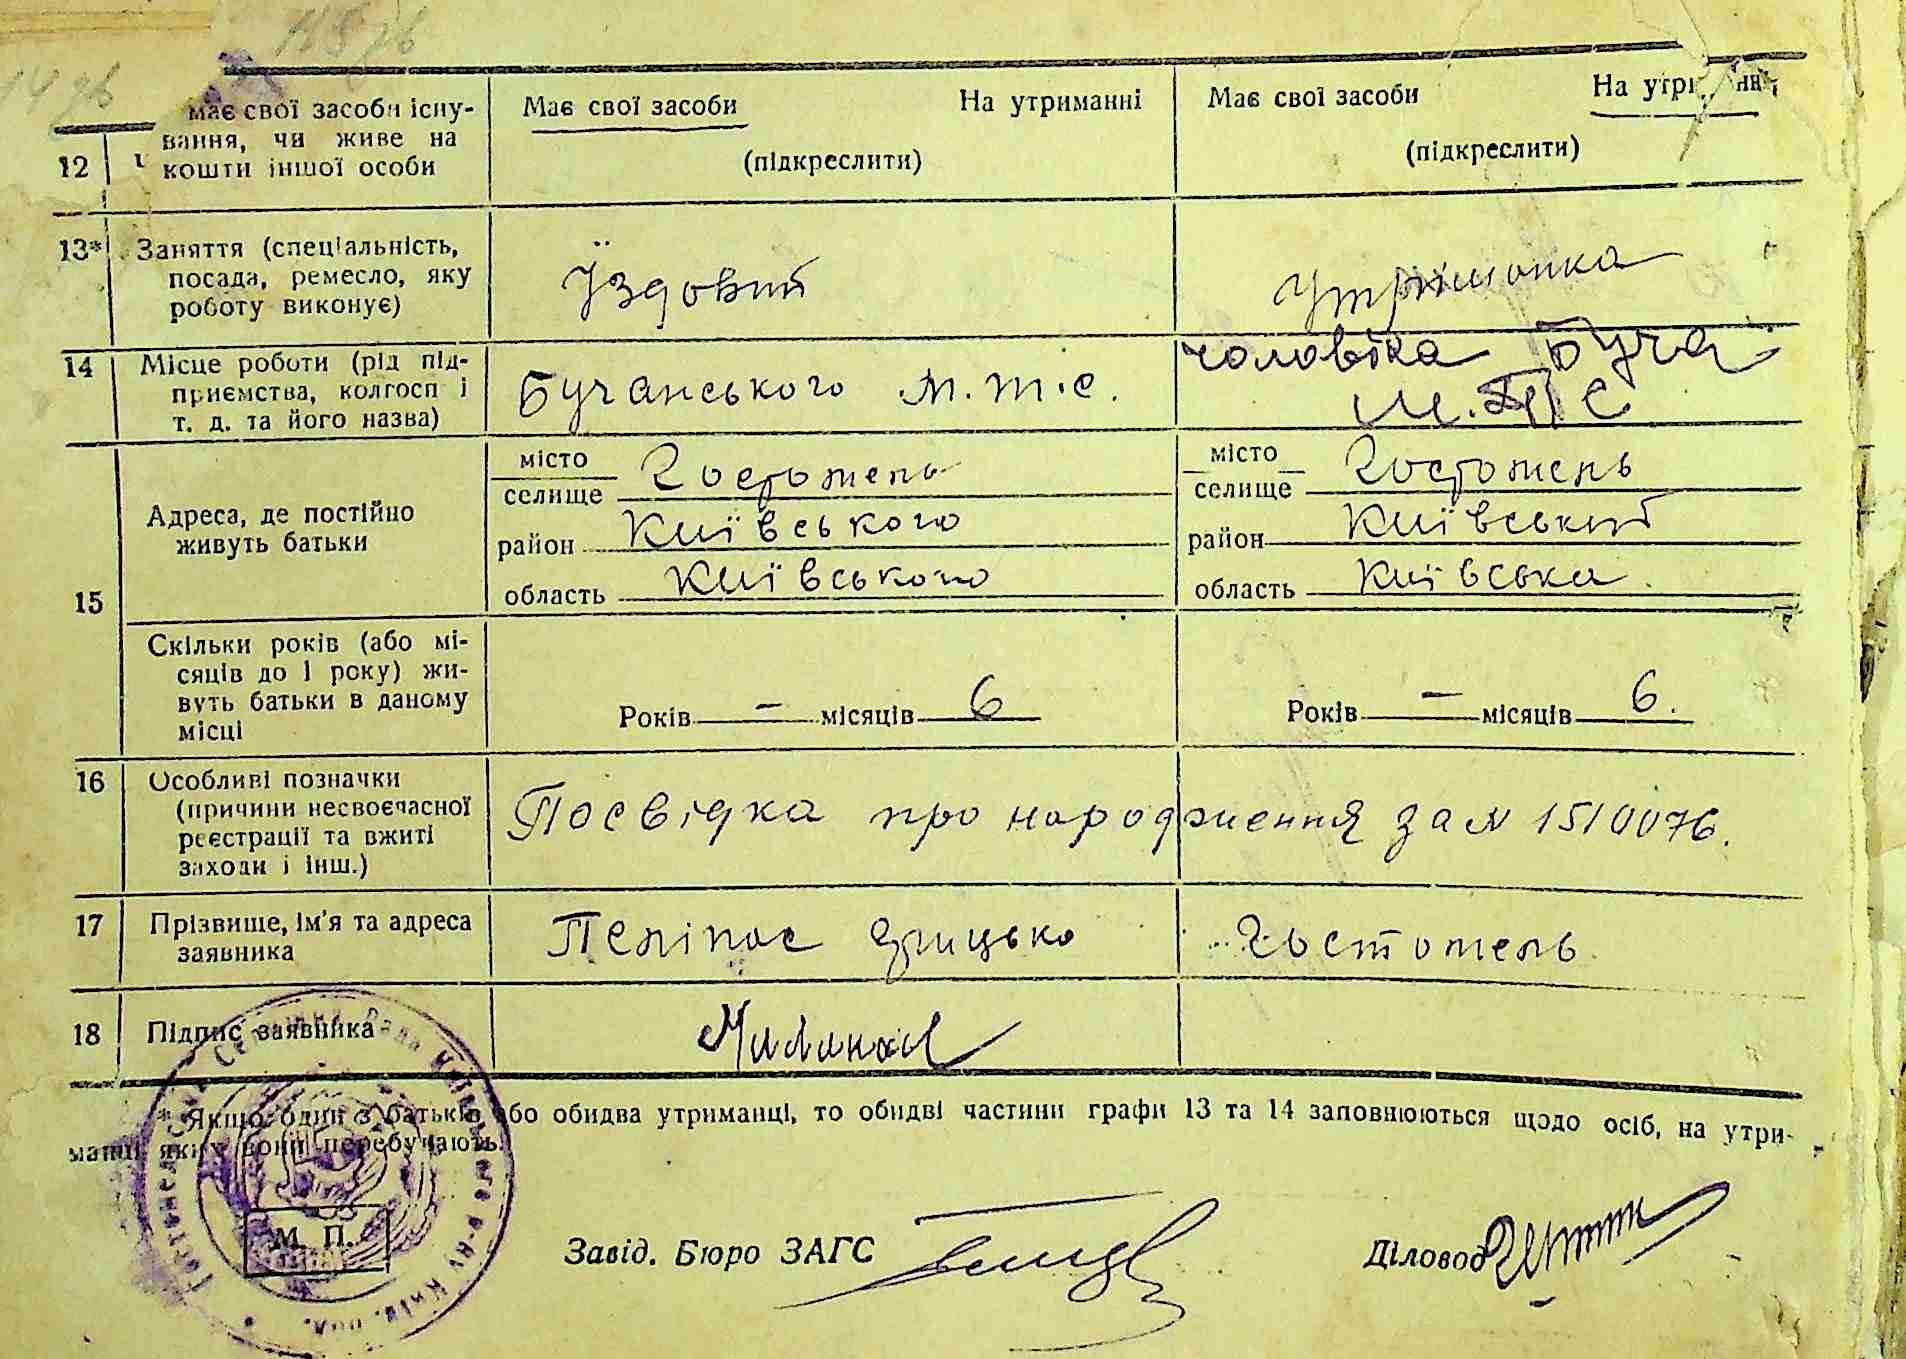 14 дв
118 дв
12
має свої засоби існу-
вання, чи живе на
кошти іншої особи
Має свої засоби На утриманні
(підкреслити)
Має свої засоби
(підкреслити)
13*
Заняття (спеціальність,
посада, ремесло, яку
роботу виконує)
Їздовий
Утриманка
14
Місце роботи (рід під-
приємства, колгосп і
т. д. та його назва)
Бучанського м.т.с.
чоловіка Буча
М.Т.С
15
Адреса, де постійно
живуть батьки
місто
селище Гостомель
район Київського
область Київського
місто
селище Гостомель
район Київський
область Київська
Скільки років (або мі-
сяців до 1 року) жи-
вуть батьки в даному
місці
Років — місяців 6
Років — місяців 6.
16
Особливі позначки
(причини несвоєчасної
реєстрації та вжиті
заходи і інш.)
Посвідка про народження за N 1510076.
17
Прізвище, ім'я та адреса
заявника
Пеліпас Грицько
Гостомель
18
Підпис заявника
* Якщо один з батьків або обидва утриманці, то обидві частини графи 13 та 14 заповнюються щодо осіб, на утри-
манні яких вони перебувають.
М. П.
Завід. Бюро ЗАГС
Діловод